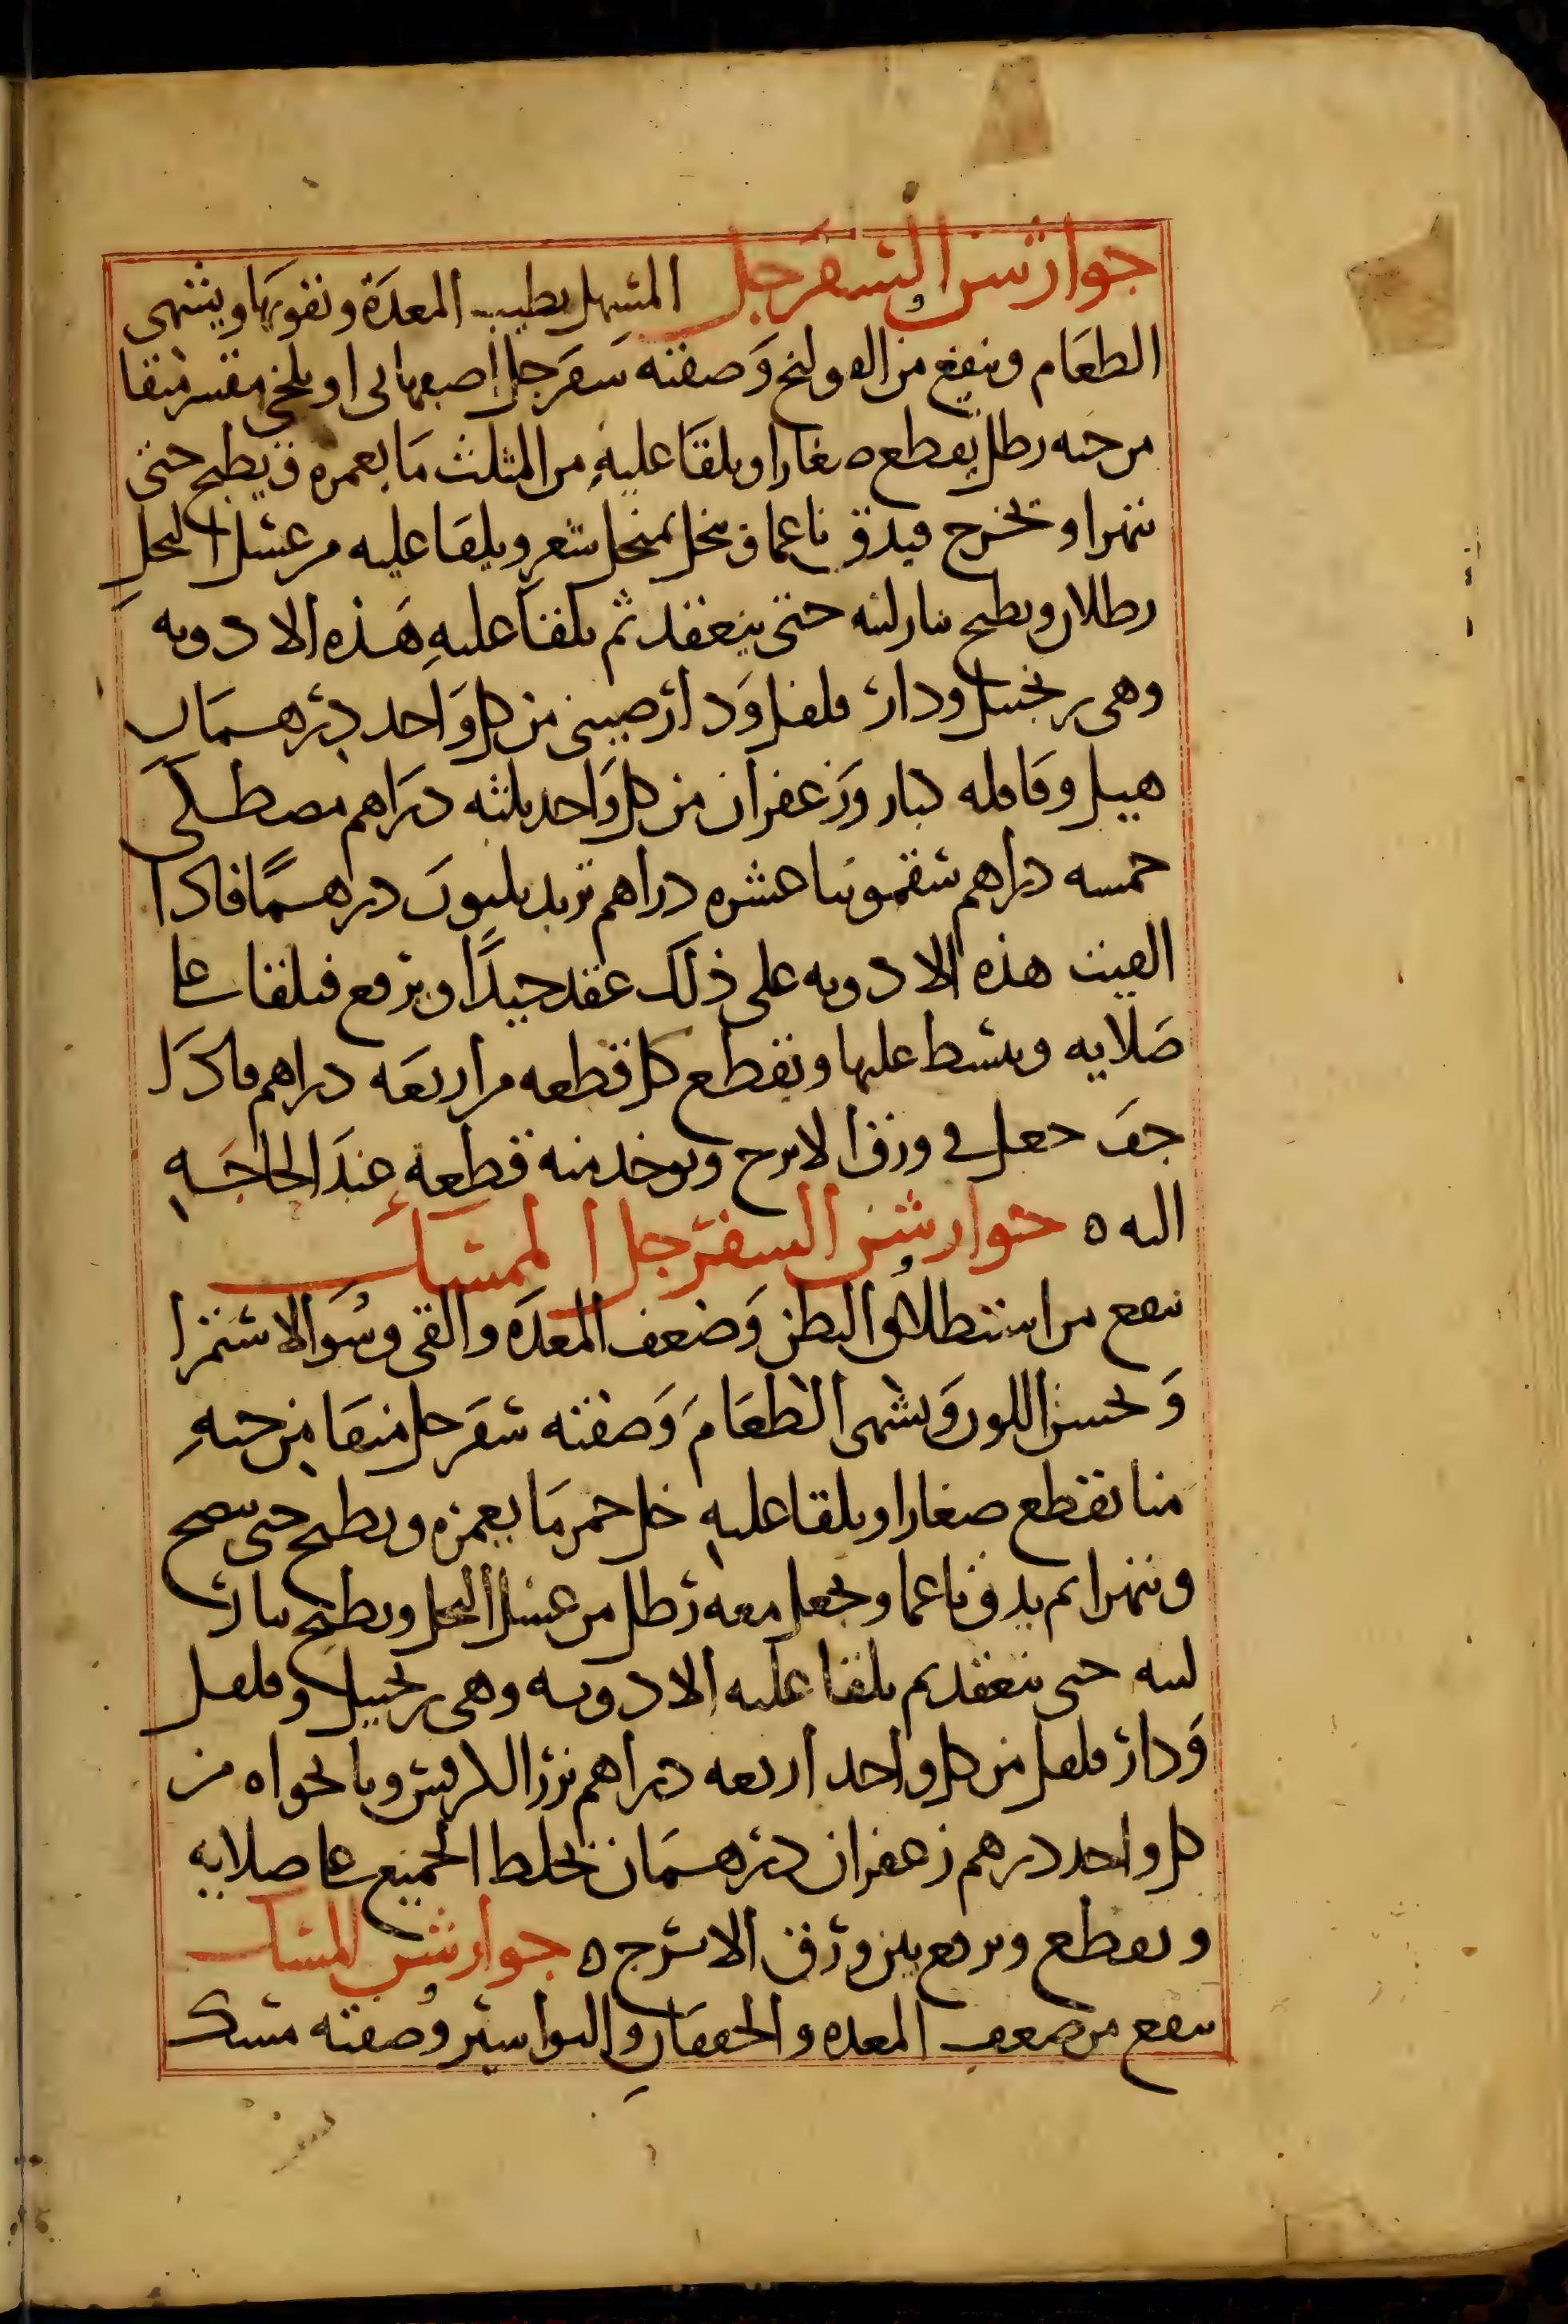 جوارشن السفرجل المسهل يطيب المعدة ويقويها ويشهى
الطعام وينفع من القولنج وصفته سفرجل اصبهانى او بلخى مقشر منقا
من حبه رطل يقطع صغارا ويلقا عليه من المثلث ما يغمره ويطبخ حتى
يتهرا ويخرج فيدق ناعما وينخل بمنخل شعر ويلقا عليه من عسل النحل
رطلان ويطبخ بنار لينه حتى ينعقد ثم يلقا عليه هذه الادويه
وهى زنجبيل ودار فلفل ودار صينى من كل واحد درهمان
هيل وقاقله كبار وزعفران من كل واحد ثلثه دراهم مصطكى
خمسه دراهم سقمونيا عشره دراهم تربد ثلثون درهما فاذا
القيت هذه الادويه على ذلك عقد جيدا ويرفع فيلقا على
صلايه ويبسط عليها ويقطع كل قطعه من اربعه دراهم فاذا
جف جعل فى ورق الاترج ويوخذ منه قطعه عند الحاجه
اليه ه جوارشن السفرجل الممسك
ينفع من استطلاق البطن وضعف المعده والقى وسو الاستمرا
ويحسن اللون ويشهى الطعام وصفته سفرجل منقا من حبه
منا يقطع صغارا ويلقا عليه خل خمر ما يغمره ويطبخ حتى ينضج
ويتهرا ثم يدق ناعما ويجعل معه رطل من عسل النحل ويطبخ بنار
لينه حتى ينعقد ثم يلقا عليه الادويه وهى زنجبيل وفلفل
ودار فلفل من كل واحد اربعه دراهم بزر الكرفس ونانخواه من
كل واحد درهم زعفران درهمان يخلط الجميع على صلايه
ويقطع ويرفع بين ورق الاترج ه جوارشن المسك
ينفع من ضعف المعده والخفقان والبواسير وصفته مسك